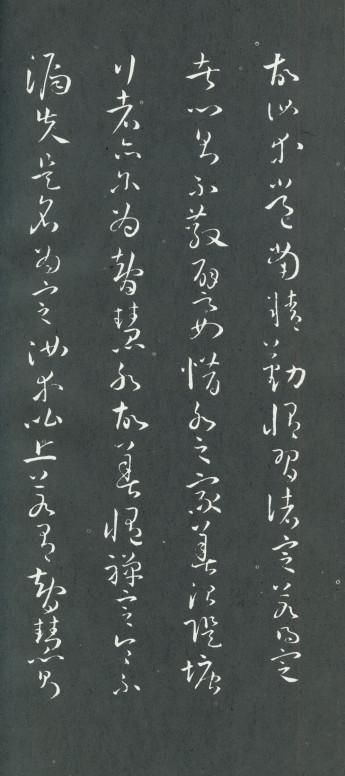 故汝等常當精勤修習諸定若得定
者心則不散譬如惜水之家善治隄塘
行者亦爾為智慧水故善修禪定令不
漏失是名為定汝等比丘若有智慧則